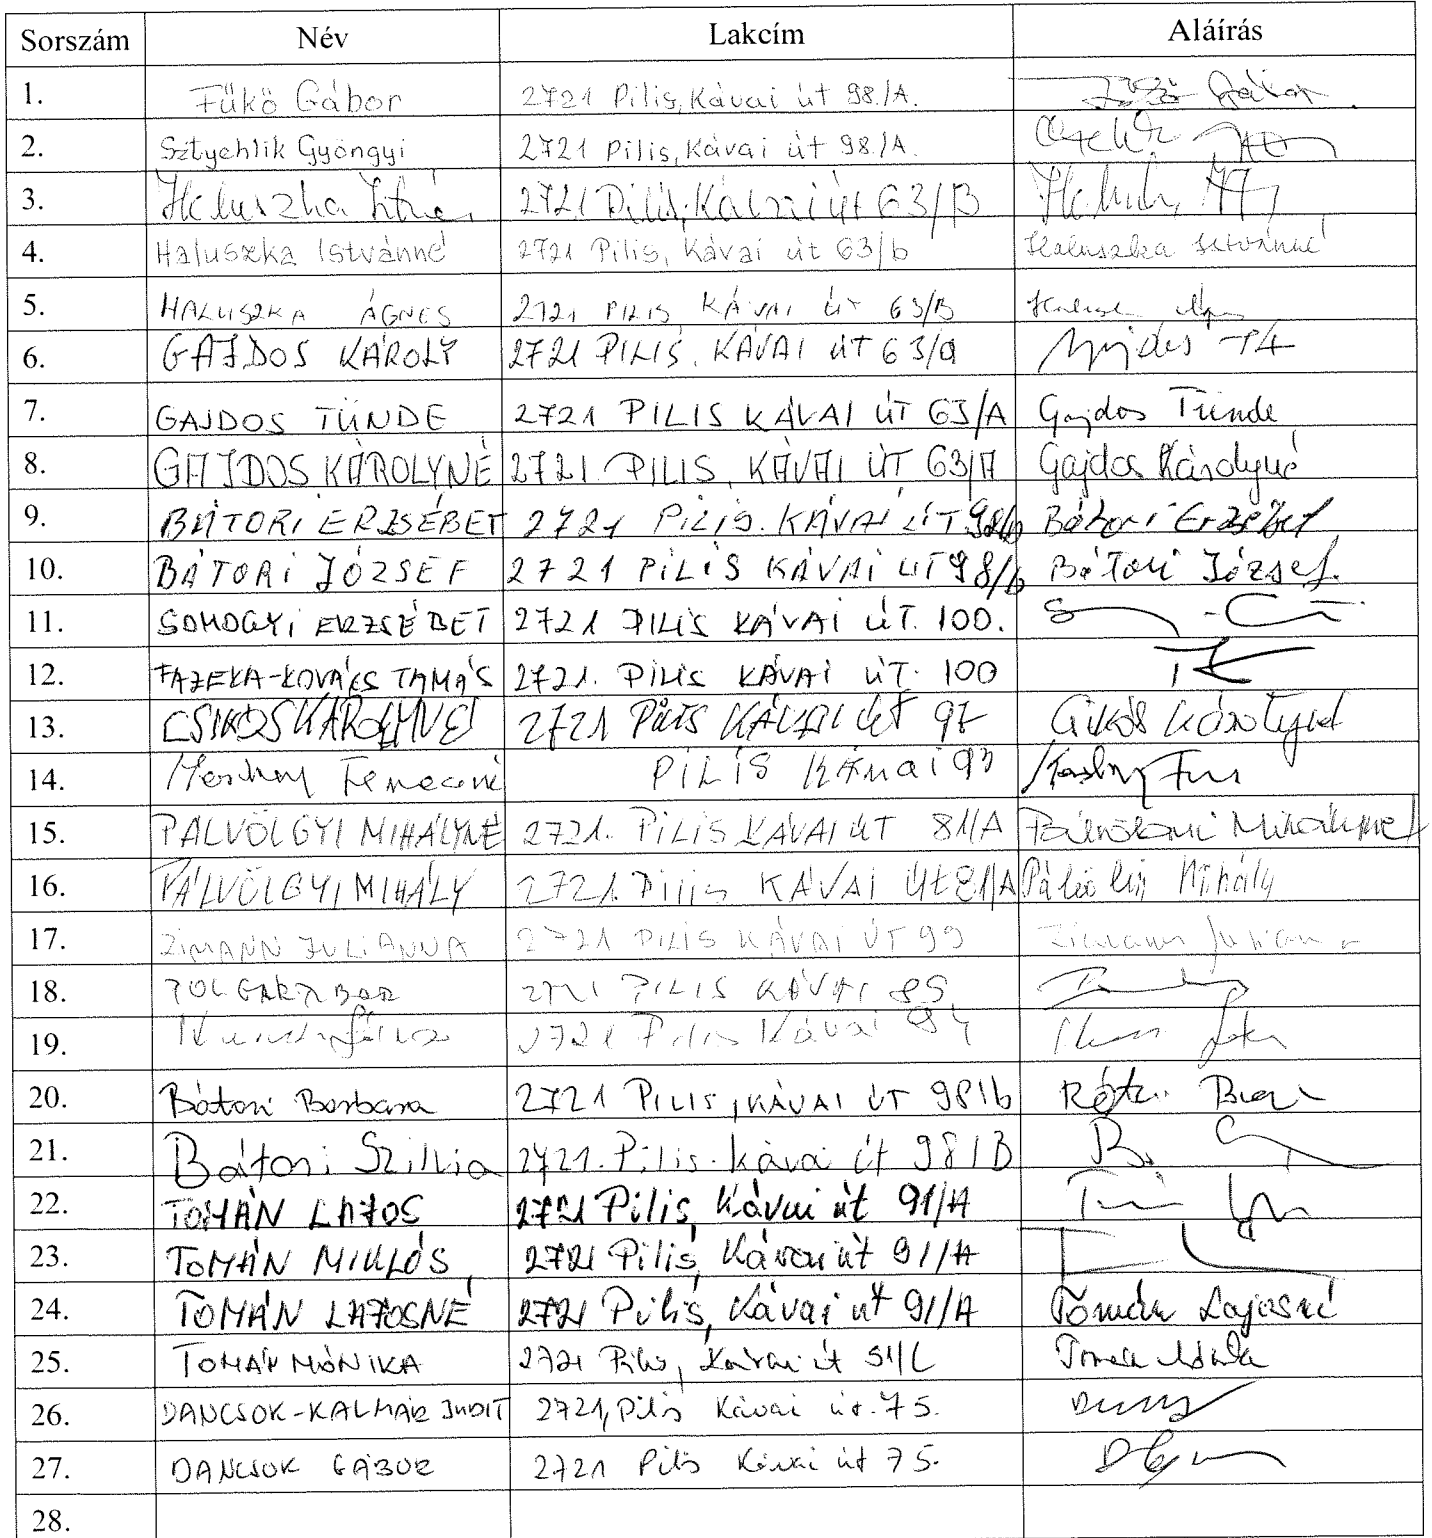 Sorszám Név Lakcím Aláírás
1. Fükő Gábor 2721 Pilis, Kávai út 98./A. Gábor
2. Sztyehlik Gyöngyi 2721 Pilis, Kávai út 98./A.
3. Haluszka 2721 Pilis, Kávai út 63/B
4. Haluszka Istvánné 2721 Pilis, Kávai út 63/b Haluszka Istvánné
5. HALUSZKA ÁGNES 2721 PILIS KÁVAI ÚT 63/B
6. GAJDOS KÁROLY 2721 PILIS. KÁVAI ÚT 63/a
7. GAJDOS TÜNDE 2721 PILIS KÁVAI ÚT 63/A Gajdos Tünde
8. GAJDOS KÁROLYNÉ 2721. PILIS, KÁVAI ÚT 63/A Gajdos Károlyné
9. BÁTORI ERZSÉBET 2721 PILIS. KÁVAI ÚT 98/b Bátori Erzsébet
10. BÁTORI JÓZSEF 2721 PILIS KÁVAI ÚT 98/b Bátori József.
11. SOMOGYI ERZSÉBET 2721 PILIS KÁVAI ÚT. 100.
12. FAZEKA-KOVÁCS TAMÁS 2721. PILIS KÁVAI ÚT. 100
13. CSIKÓS KÁROLYNÉ 2721 Pilis KÁVAI út 97 Csikós Károlyné
14. PILIS Kávai 93
15. PÁLVÖLGYI MIHÁLYNÉ 2721. PILIS KÁVAI ÚT 81/A Pálvölgyi Mihályné
16. PÁLVÖLGYI MIHÁLY 2721. Pilis KÁVAI út 81/A Mihály
17. ZIMANN JULIANNA 2721 PILIS KÁVAI ÚT 99 Zimann Julianna
18. POLGÁR TIBOR 2721 PILIS KÁVAI 89
19. 2721 Pilis Kávai
20. Bátori Barbara 2721 PILIS, KÁVAI ÚT 98/b
21. Bátori Szilvia 2721. Pilis. Kávai út 98/B B.
22. TOMÁN LAJOS 2721 Pilis, Kávai út 91/A
23. TOMÁN MIKLÓS 2721 Pilis, Kávai út 91/A
24. TOMÁN LAJOSNÉ 2721 Pilis, Kávai út 91/A Tomán Lajosné
25. TOMÁN MÓNIKA 2721 Pilis, Kávai út 91/C
26. DANCSOK-KALMÁR JUDIT 2721, Pilis Kávai út. 75.
27. DANCSOK GÁBOR 2721 Pilis Kávai út 75.
28.